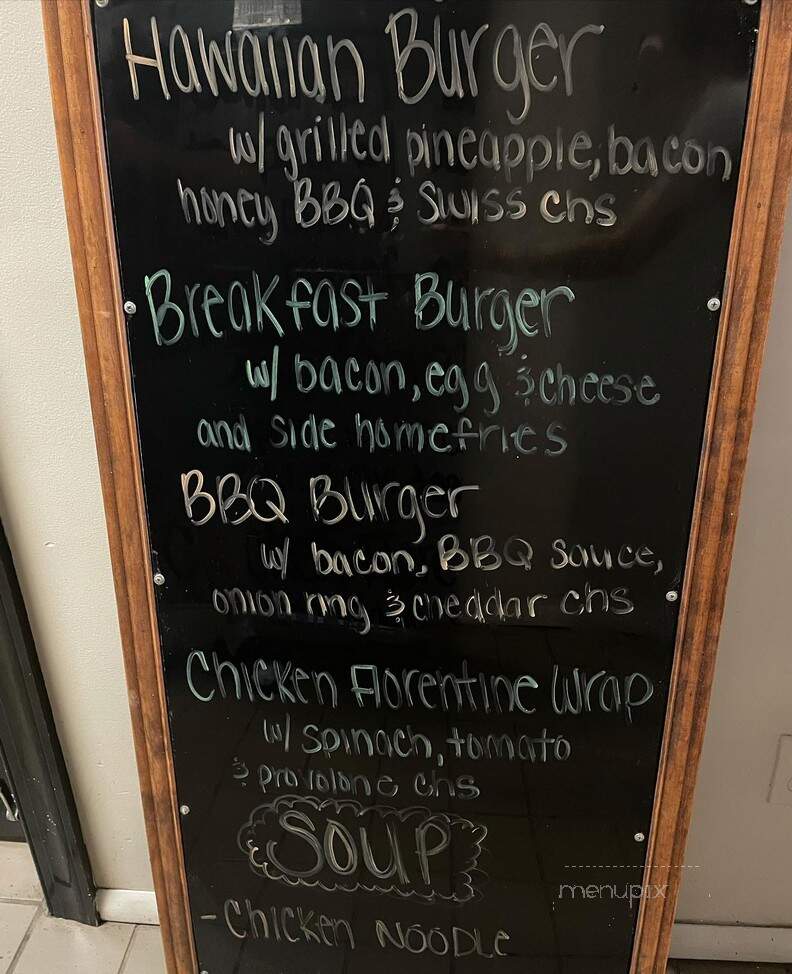 Hawaiian Burger
w/ grilled pineapple, bacon
honey BBQ & Swiss chs
Breakfast Burger
w/ bacon, egg & cheese
and side homefries
BBQ Burger
w/ bacon, BBQ sauce,
onion ring & cheddar chs
Chicken Florentine Wrap
w/ spinach, tomato
& provolone chs
SOUP
- Chicken NOODLe
menupix